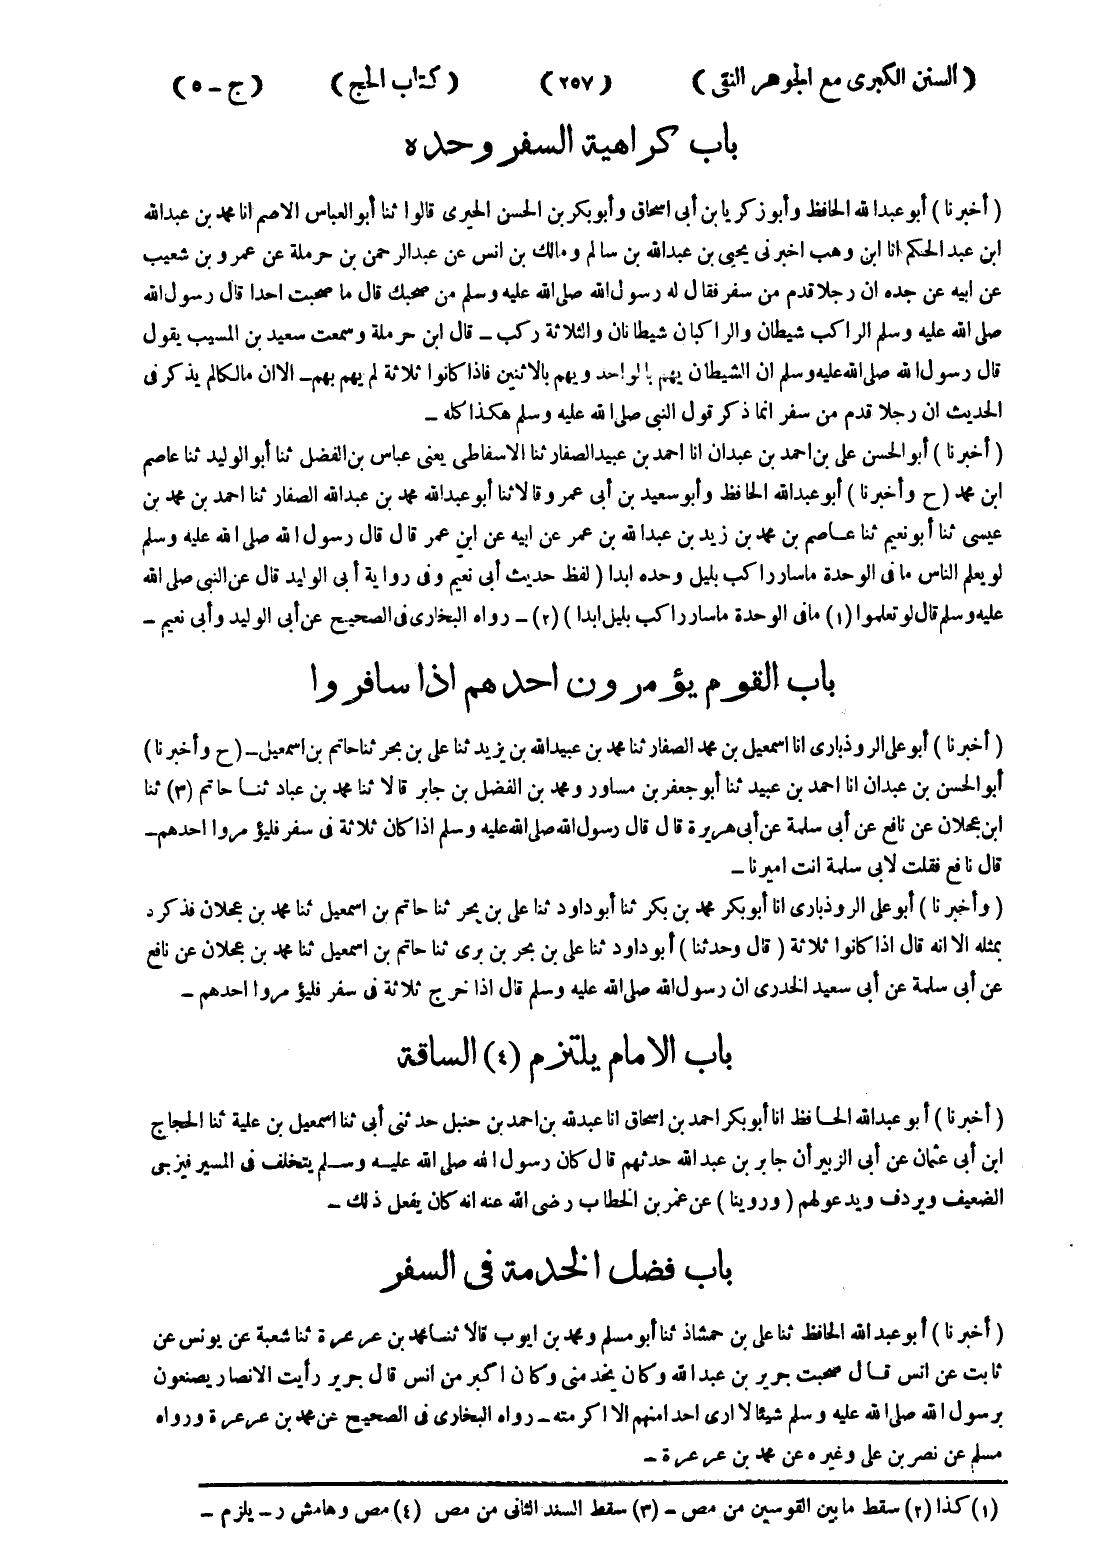 ( السنن الكبرى مع الجوهر النقى ) ( ٢٥٧ ) ( كتاب الحج ) ( ج ـ ٥ )
باب كراهية السفر وحده
( أخبرنا ) أبو عبدالله الحافظ وأبو زكريا بن أبى اسحاق وأبو بكر بن الحسن الحيرى قالوا ثنا أبو العباس الاصم انا محمد بن عبدالله
ابن عبد الحكم انا ابن وهب اخبرنى يحيى بن عبدالله بن سالم ومالك بن انس عن عبدالرحمن بن حرملة عن عمرو بن شعيب
عن ابيه عن جده ان رجلا قدم من سفر فقال له رسول الله صلى الله عليه وسلم من صحبك قال ما صحبت احدا قال رسول الله
صلى الله عليه وسلم الراكب شيطان والراكبان شيطانان والثلاثة ركب ـ قال ابن حرملة وسمعت سعيد بن المسيب يقول
قال رسول الله صلى الله عليه وسلم ان الشيطان يهم بالواحد ويهم بالاثنين فاذا كانوا ثلاثة لم يهم بهم ـ الا ان مالكا لم يذكر فى
الحديث ان رجلا قدم من سفر انما ذكر قول النبى صلى الله عليه وسلم هكذا كله ـ
( أخبرنا ) أبو الحسن على بن احمد بن عبدان انا احمد بن عبيد الصفار ثنا الاسفاطى يعنى عباس بن الفضل ثنا أبو الوليد ثنا عاصم
ابن محمد ( ح وأخبرنا ) أبو عبدالله الحافظ وأبو سعيد بن أبى عمرو قالا ثنا أبو عبدالله محمد بن عبدالله الصفار ثنا احمد بن محمد بن
عيسى ثنا أبو نعيم ثنا عاصم بن محمد بن زيد بن عبدالله بن عمر عن ابيه عن ابن عمر قال قال رسول الله صلى الله عليه وسلم
لو يعلم الناس ما فى الوحدة ما سار راكب بليل وحده ابدا ( لفظ حديث أبى نعيم وفى رواية أبى الوليد قال عن النبى صلى الله
عليه وسلم قال لو تعلموا (١) مافى الوحدة ما سار راكب بليل ابدا ) (٢) ـ رواه البخارى فى الصحيح عن أبى الوليد وأبى نعيم ـ
باب القوم يؤمرون احدهم اذا سافروا
( أخبرنا ) أبو على الروذبارى انا اسمعيل بن محمد الصفار ثنا محمد بن عبيدالله بن يزيد ثنا على بن بحر ثنا حاتم بن اسمعيل ـ ( ح وأخبرنا )
أبو الحسن بن عبدان انا احمد بن عبيد ثنا أبو جعفر بن مساور ومحمد بن الفضل بن جابر قالا ثنا محمد بن عباد ثنا حاتم (٣) ثنا
ابن عجلان عن نافع عن أبى سلمة عن أبى هريرة قال قال رسول الله صلى الله عليه وسلم اذا كان ثلاثة فى سفر فليؤمروا احدهم ـ
قال نافع فقلت لابى سلمة انت اميرنا ـ
( وأخبرنا ) أبو على الروذبارى انا أبو بكر محمد بن بكر ثنا أبو داود ثنا على بن بحر ثنا حاتم بن اسمعيل ثنا محمد بن عجلان فذكره
بمثله الا انه قال اذا كانوا ثلاثة ( قال وحدثنا ) أبو داود ثنا على بن بحر بن برى ثنا حاتم بن اسمعيل ثنا محمد بن عجلان عن نافع
عن أبى سلمة عن أبى سعيد الخدرى ان رسول الله صلى الله عليه وسلم قال اذا خرج ثلاثة فى سفر فليؤمروا احدهم ـ
باب الامام يلتزم (٤) الساقة
( أخبرنا ) أبو عبدالله الحافظ انا أبو بكر احمد بن اسحاق انا عبدلله بن احمد بن حنبل حدثنى أبى ثنا اسمعيل بن علية ثنا الحجاج
ابن أبى عثمان عن أبى الزبير أن جابر بن عبد الله حدثهم قال كان رسول الله صلى الله عليه وسلم يتخلف فى المسير فيزجى
الضعيف ويردف ويدعو لهم ( وروينا ) عن عمر بن الخطاب رضى الله عنه انه كان يفعل ذلك ـ
باب فضل الخدمة فى السفر
( أخبرنا ) أبو عبدالله الحافظ ثنا على بن حمشاذ ثنا أبو مسلم ومحمد بن ايوب قالا ثنا محمد بن عرعرة ثنا شعبة عن يونس عن
ثابت عن انس قال صحبت جرير بن عبدالله وكان يخدمنى وكان اكبر من انس قال جرير رأيت الانصار يصنعون
برسول الله صلى الله عليه وسلم شيئا لا ارى احدا منهم الا اكرمته ـ رواه البخارى فى الصحيح عن محمد بن عرعرة ورواه
مسلم عن نصر بن على وغيره عن محمد بن عرعرة ـ
(١) كذا (٢) سقط ما بين القوسين من مص ـ (٣) سقط السند الثانى من مص (٤) مص وهامش ر ـ يلزم ـ